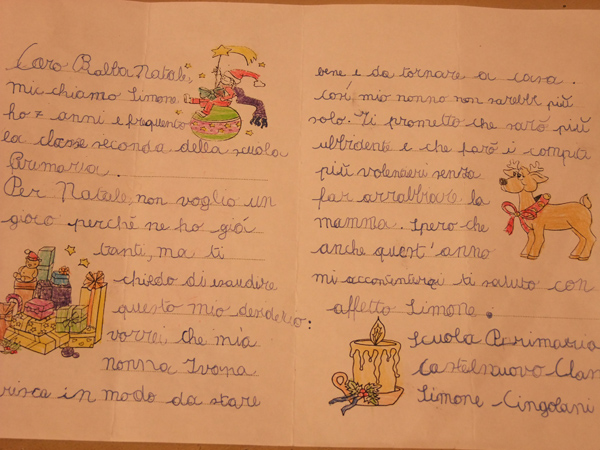 Caro Babba Natale,
mi chiamo Simone
ho 7 anni e frequento
la classe seconda della scuola
Primaria.
Per Natale, non voglio un
gioco perché ne ho giá
tanti, ma ti
chiedo di esaudire
questo mio desiderio:
vorrei, che mia
nonna Ivana
risca in modo da stare
bene e da tornare a casa.
cosí mio nonno non sarebbe piú
solo. Ti prometto che saró piú
ubbidente e che faró i compiti
piú volentieri senza
far arrabbiare la
mamma. Spero che
anche quest'anno
mi accontenterai ti saluto con
affetto Simone.
Scuola Primaria
Castelnuovo Clas
Simone Cingolani